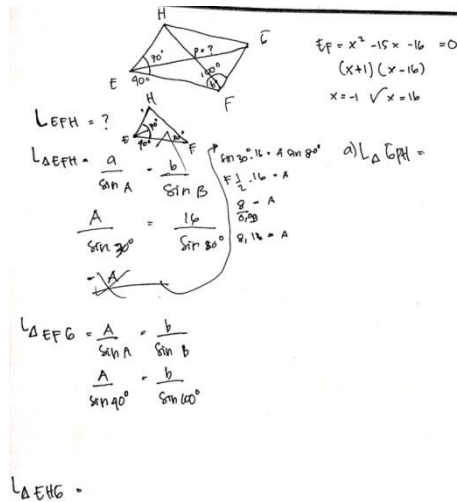 H
G
P = ?
70°
E
40°
100°
F
EF = x² - 15x - 16 = 0
(x+1) (x-16)
x = -1 √ x = 16
L EFH = ?
H
E
40°
F
L∆EFH = a/sin A = b/Sin B
A/sin 30° = 16/Sin 80°
- A
Sin 30° . 16 = A Sin 80°
1/2 . 16 = A
8/0,98 = A
8,16 = A
a) L∆ GPH =
L∆EFG = A/Sin A = b/Sin B
A/Sin 40° = b/Sin 100°
L∆EHG =